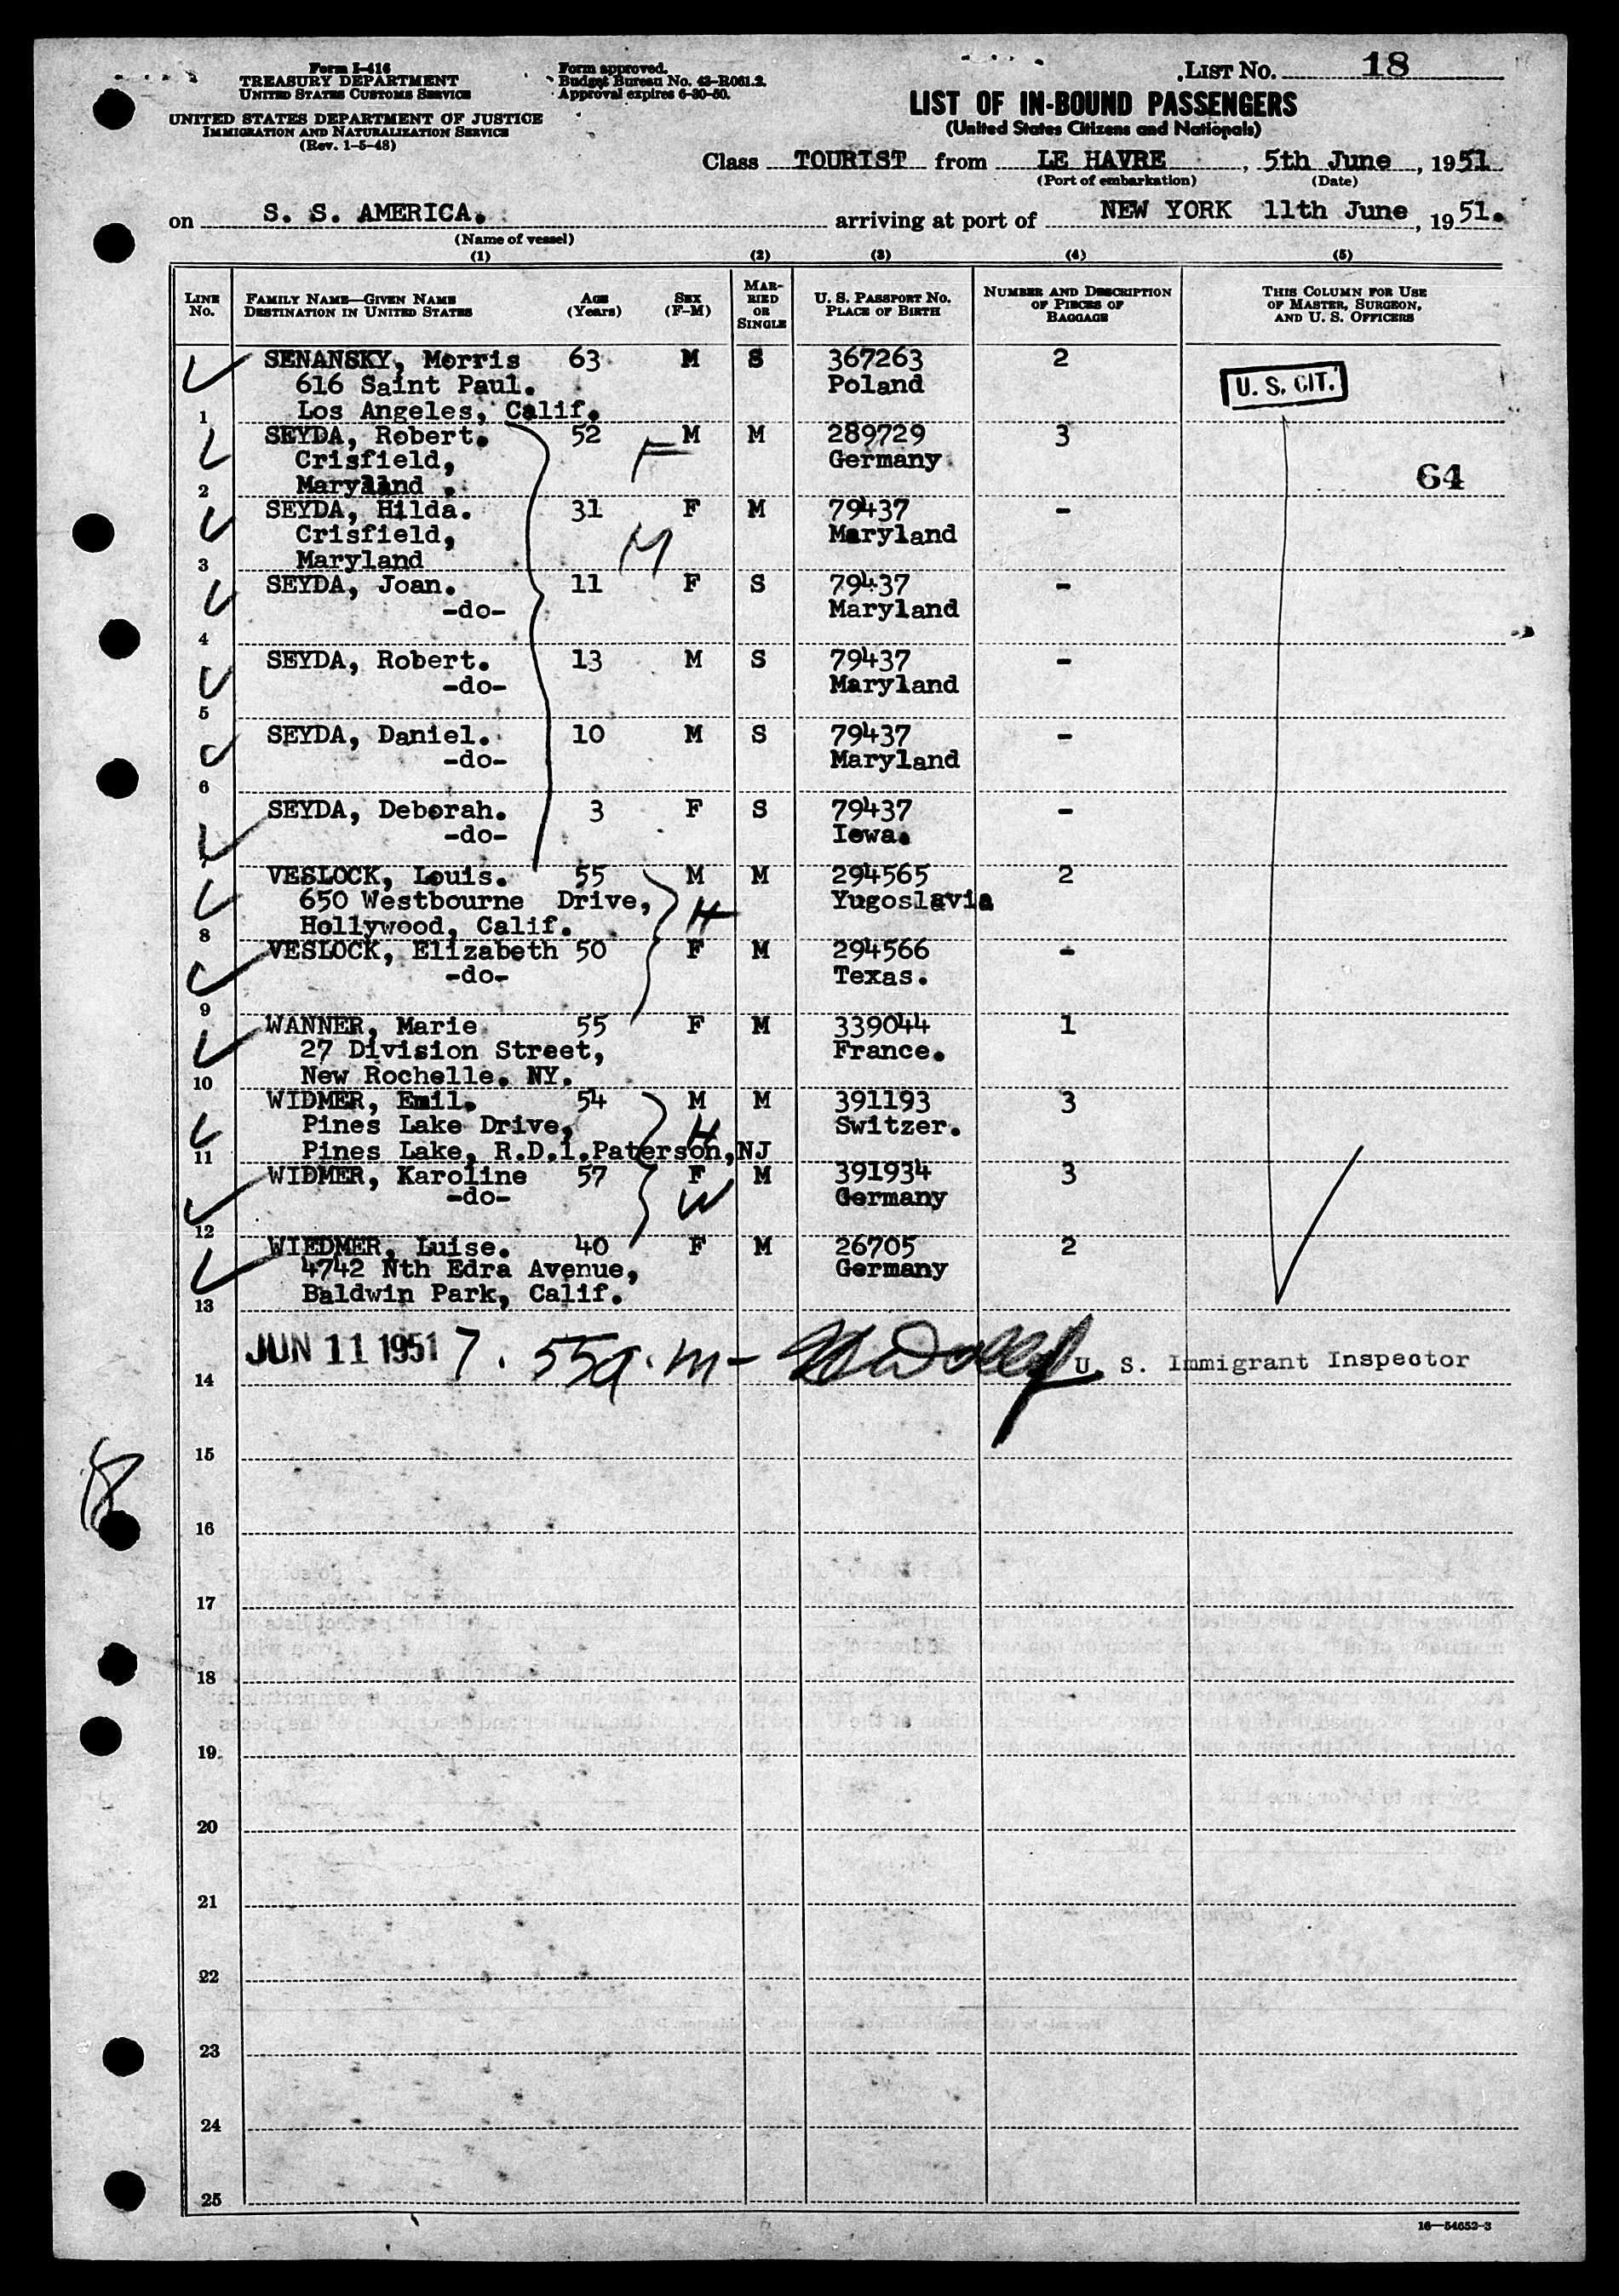 Form I-416
TREASURY DEPARTMENT
UNITED STATES CUSTOMS SERVICE
UNITED STATES DEPARTMENT OF JUSTICE
IMMIGRATION AND NATURALIZATION SERVICE
(Rev. 1-5-48)
Form approved.
Budget Bureau No. 43-R061.2.
Approval expires 6-30-50.
LIST No. 18
LIST OF IN-BOUND PASSENGERS
(United States Citizens and Nationals)
Class TOURIST from LE HAVRE, 5th June, 1951
(Port of embarkation) (Date)
on S. S. AMERICA. arriving at port of NEW YORK 11th June, 1951.
(Name of vessel)
(1) (2) (3) (4) (5)
LINE No. FAMILY NAME—GIVEN NAME DESTINATION IN UNITED STATES AGE (Years) SEX (F-M) MARRIED OR SINGLE U. S. PASSPORT No. PLACE OF BIRTH NUMBER AND DESCRIPTION OF PIECES OF BAGGAGE THIS COLUMN FOR USE OF MASTER, SURGEON, AND U. S. OFFICERS
SENANSKY, Morris 63 M S 367263 2
616 Saint Paul. Poland U. S. CIT.
1 Los Angeles, Calif.
SEYDA, Robert. 52 F M M 289729 3
Crisfield, Germany
2 Maryland . 64
SEYDA, Hilda. 31 F M 79437 -
Crisfield, M Maryland
3 Maryland
SEYDA, Joan. 11 F S 79437 -
-do- Maryland
4
SEYDA, Robert. 13 M S 79437 -
-do- Maryland
5
SEYDA, Daniel. 10 M S 79437 -
-do- Maryland
6
SEYDA, Deborah. 3 F S 79437 -
-do- Iowa.
VESLOCK, Louis. 55 M M 294565 2
650 Westbourne Drive, H Yugoslavia
8 Hollywood, Calif.
VESLOCK, Elizabeth 50 F M 294566 -
-do- Texas.
9
WANNER, Marie 55 F M 339044 1
27 Division Street, France.
10 New Rochelle. NY.
WIDMER, Emil. 54 M M 391193 3
Pines Lake Drive, H Switzer.
11 Pines Lake, R.D.1.Paterson,NJ
WIDMER, Karoline 57 F M 391934 3
-do- W Germany
12
WIEDMER, Luise. 40 F M 26705 2
4742 Nth Edra Avenue, Germany
13 Baldwin Park, Calif.
JUN 11 1951 7.55a.m- U. S. Immigrant Inspector
14
15
16
17
18
19
20
21
22
23
24
25
16—54652-3